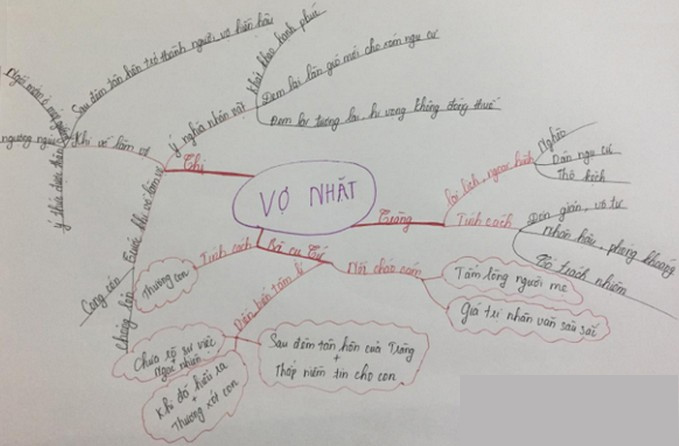 VỢ NHẶT
Thị
Trước khi về làm vợ
Cong cớn
Chỏng lỏn
Khi về làm vợ
ngượng ngịu
Ngồi mớm ở mép
ý thức được thân phận
Sau đêm tân hôn trở thành người vợ hiền hậu
Ý nghĩa nhân vật
Khát khao hạnh phúc
Đem lại làn gió mới cho xóm ngụ cư
Đem lại tương lai, hi vọng không đóng thuế
Tràng
Lai lịch, ngoại hình
Nghèo
Dân ngụ cư
Thô kệch
Tính cách
Đơn giản, vô tư
Nhân hậu, phóng khoáng
Có trách nhiệm
Bà cụ Tứ
Tính cách
Thương con
Diễn biến tâm lí
Chưa rõ sự việc
+
Ngạc nhiên
Khi đó hiểu ra
+
Thương xót con
Sau đêm tân hôn của Tràng
+
Thắp niềm tin cho con
Nồi cháo cám
Tấm lòng người mẹ
Giá trị nhân văn sâu sắc